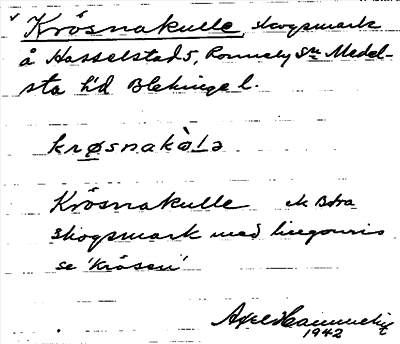 Krösnakulle, skogsmark
å Hasselstad 5, Ronneby Sn Medel-
sta hd Blekinge l.
krøsnakàlə
Krösnakulle
skogsmark med lingonris
se 'Krösen'
1942